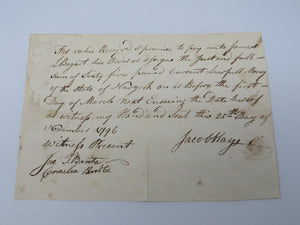 For value Received I promise to pay unto James
J. Bogart his Exers or assigns the Just and full
Sum of Sixty five pound Current Lawfull Money
of the State of Newyork on or Before the first
Day of March Next Ensuing the Date hereof
as witness my Hand and Seal this 25th Day of
November 1796
Witness Present
Jacob Hays
Cornelia